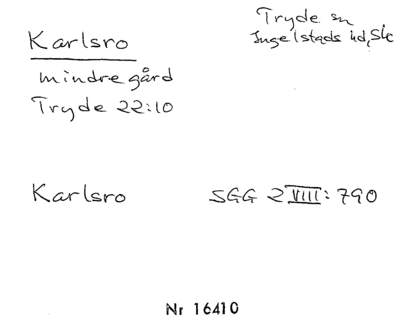 Karlsro
Tryde sn
Ingelstads hd, Sk
mindre gård
Tryde 22:10
Karlsro SGG 2 VIII: 790
Nr 16410